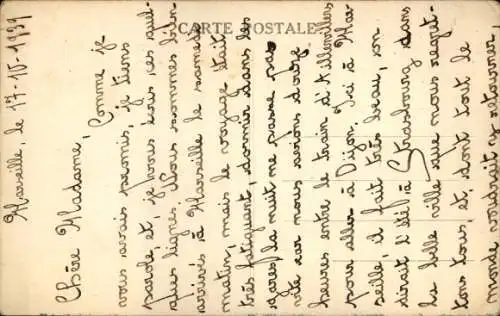 CARTE POSTALE
Marseille, le 17-10-1939
Chère Madame,
Comme je
vous avais promis, je tiens
parole et, je vous écris quel-
ques lignes. Nous sommes bien
arrivés à Marseille le samedi
matin, mais le voyage était
très fatiguant, dormir dans les
gares la nuit ne passe pas
vite car nous avions douze
heures entre le train d'
pour aller à Dijon. Ici à Mar-
seille, il fait très beau, on
dirait l'été à Strasbourg dans
la belle ville que nous regret-
tons tous, et dont tout le
monde voudrait y retourner